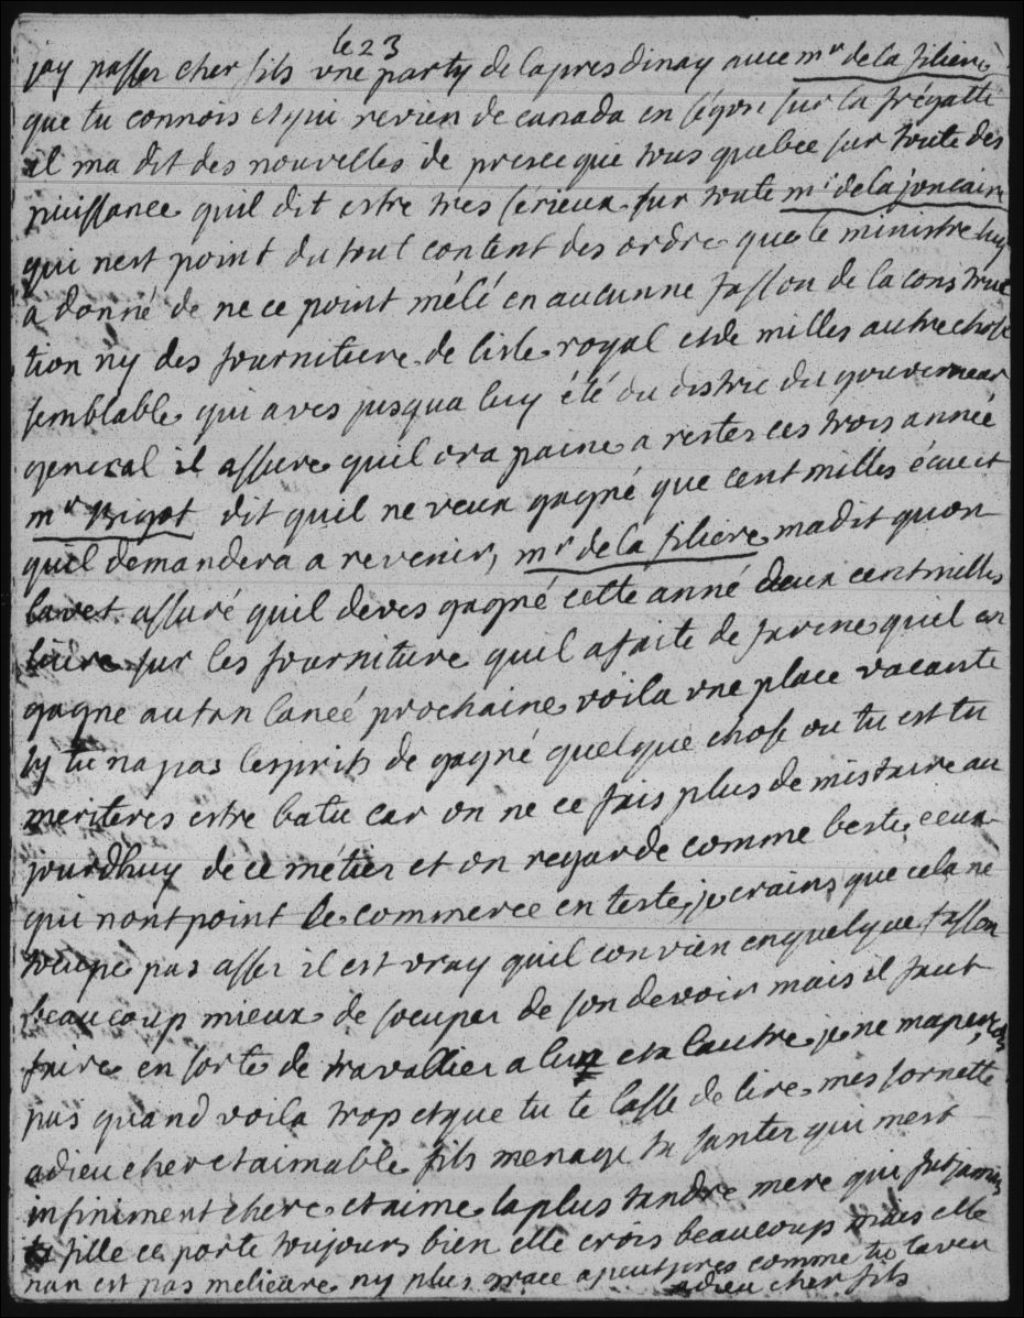 le 23
jay passer cher fils vne party de lapres dinay avec mr de la filiere
que tu connois et qui revien de canada en segon sur la frégatte
il ma dit des nouvelles de presce que tous quebec sur toute des
puissance quil dit estre tres sérieux sur toute mr de la joncaire
qui nest point du tout content des ordre que le ministre luy
a donné de ne ce point mélé en aucunne fasson de la construc
tion ny des fourniture de lisle royal et de milles autre chose
semblable qui aves jusqua luy été du distric du gouverneur
general il assure quil ora paine a rester ces trois année
mr Bigot dit quil ne veux gagné que cent milles écu et
quil demandera a revenir, mr de la filiere madit quon
lavet assuré quil deves gagné cette anné deux cent milles
livre sur les fourniture quil a faite de farine quil en
gagne autan laneé prochaine voila vne place vacante
sy tu na pas lesprits de gagné quelque chose ou tu est tu
meriteres estre batu car on ne ce fais plus de mistaire au
jourdhuy de ce métier et on regarde comme beste ceux
qui nont point le commerce en teste, je crains que cela ne
tocupe pas asses il est vray quil convien en quelque fasson
beaucoup mieux de socuper de son devoir mais il faut
faire en sorte de travallier a lun et a lautre je ne maperçois
pas quand voila trop et que tu te lasse de lire mes sornette
adieu cher et aimable fils menage ta santer qui mest
infiniment chere et aime la plus tandre mere qui fut jamais
ta fille ce porte toujours bien elle crois beaucoup mais elle
nan est pas melieure ny plus grace a peut pres comme tu laveu
adieu cher fils